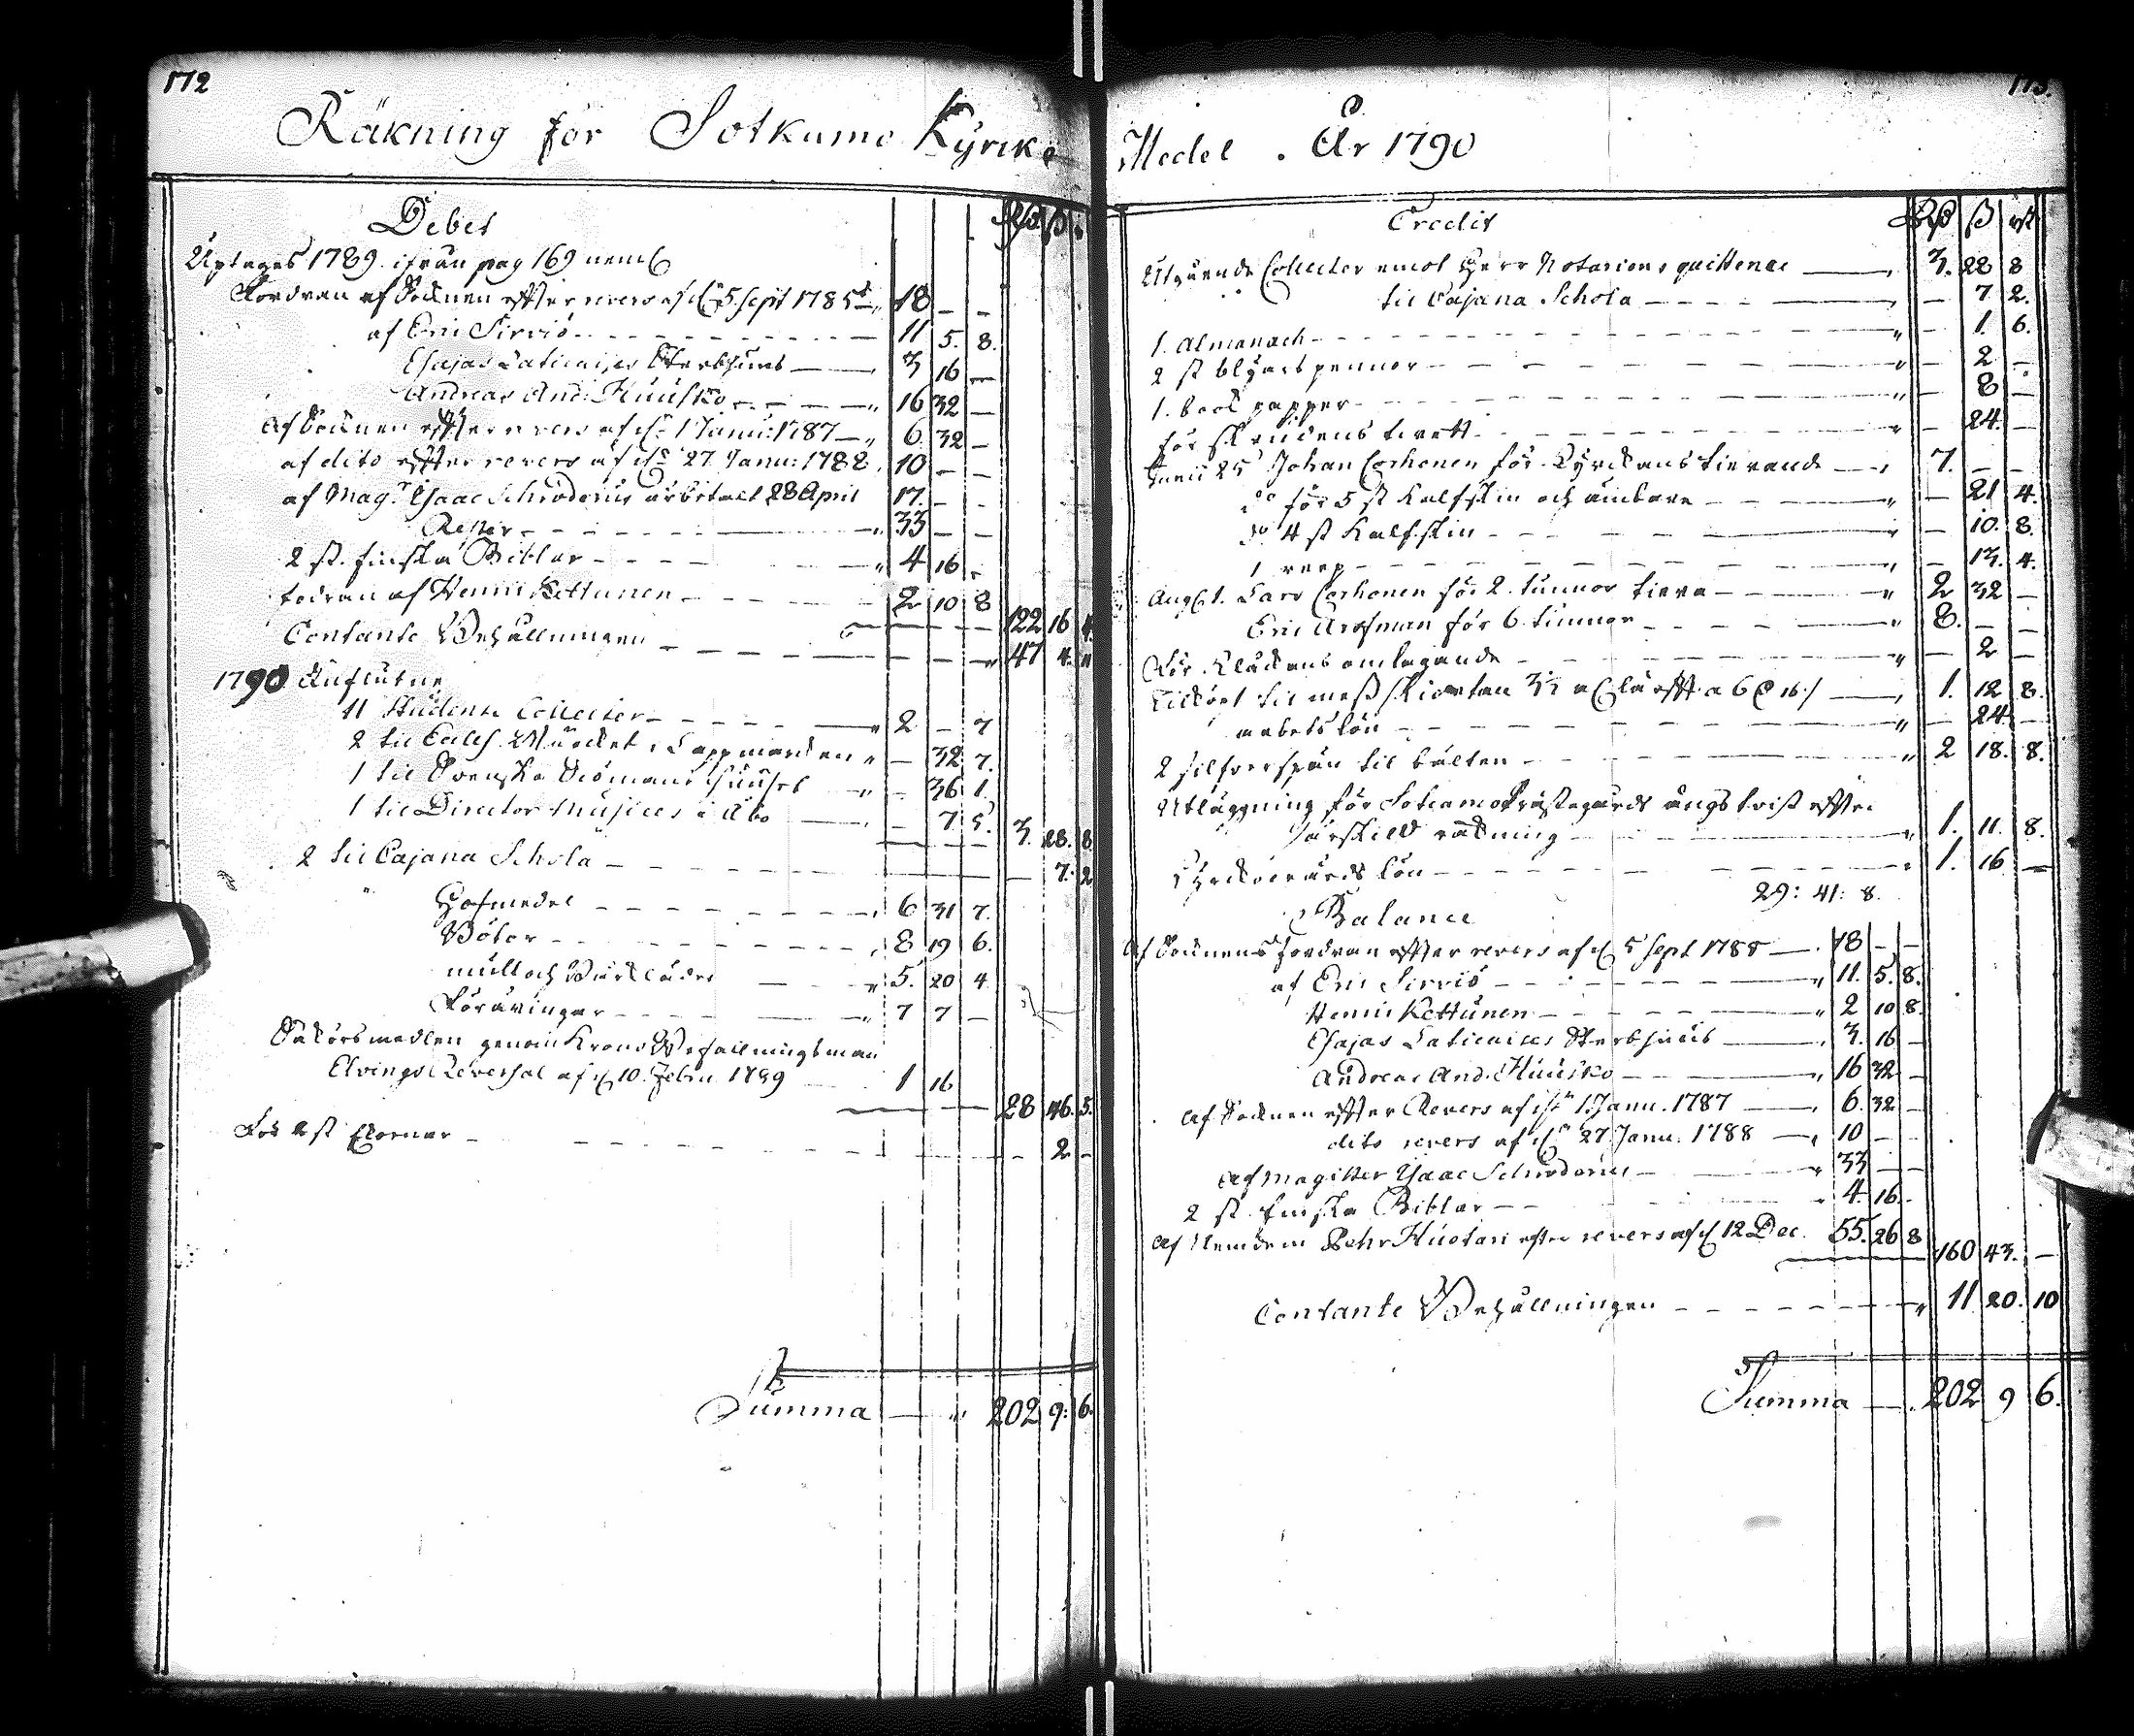 172
Räkning för Sotkamo Kyrko
Debet Rd ß
Uptages 1789 ifrån pag 169 neml
Fordran af Socknen efter revers af d 5 Sept 1785 18 - -
af Eric Sirviö 11 5. 8.
Esajas Laticaises Sterbhuus 3 16 -
Andreas And: Huusko 16 32 -
Af Socknen efter revers af d 1 Janu: 1787 6. 32 -
af dito efter revers af d 27 Janu: 1788 10 - -
af Magr Isaac Schroderus 28 April 17. - -
Rester 33 - -
2 st. finska Biblar 4 16 -
fodran af Henric Kettunen 2 10 8 122 16 4.
Contante Behållningen 47 4.
1790 Influtne
11 Student Collecter 2 - 7
2 til Eccles. Wärcket i Lappmarcken - 32 7.
1 til Svenska Siömans Huuset - 36 1.
1 til Director Musices i Åbo - 7 5. 3. 28. 8.
2 til Cajana Schola - 7. 2
Håfmedel 6 31 7.
Böter 8 19 6.
mull och Bårkläder 5. 20 4
Föräringar 7 7 -
Sakörsmedlen genom Krono Befallningsman
Elvings Reversal af d 10. Febru 1789 1 16
28 46. 5.
För 2 st 2 -
Summa 202 9: 6.
173.
Medel. År 1790
Credit Rd ß rst
Utgående Collecter emot Herr Notariens quittence 3. 28 8
til Cajana Schola - 7 2.
1. Almanach - 1. 6.
2 st blyertspennor - 2 -
1. book papper - 8 -
för skrudens tvett - 24. -
Junii 25 Johan Corhonen för Kyrckans tierande 7. - -
do för 5 st Kalfskin och ämbare - 21 4.
do 4 st Kalfskin - 10. 8.
1 reep - 13. 4.
Aug 1. Lars Corhonen för 2. tunnor tiera 2 32 -
Eric Arosman för 6 tunnor 8. - -
För Klåckans omlagande - 2 -
til mess skiortan 3½ al lärfft a 6 1. 12 8.
arbetslön - 24. -
2 silfverspän til bälten 2 18. 8.
Utläggning för Sotcamo Prästegårds ängs tvist efter
särskild räkning 1. 11. 8.
Kyrckovärds lön 1. 16 -
29: 41: 8.
Balance
Af Socknens fordran efter revers af d 5 Sept 1785 18 - -
af Eric Sirviö 11. 5. 8.
Henric Kettunen 2 10 8.
Esajas Laticaises Sterbhuus 3. 16 -
Andreas And. Huusko 16 32 -
Af Socknen efter Revers af d 1 Janu. 1787 6. 32 -
dito revers af d 27 Janu. 1788 10 - -
Af Magister Isaac Schroderus 33 - -
2 st. finska Biblar 4. 16. -
Af Nemdem Pehr Huotari efter revers af d 12 Dec. 55. 26 8
160 43. -
Contante Behållningen 11 20. 10
Summa 202 9 6.